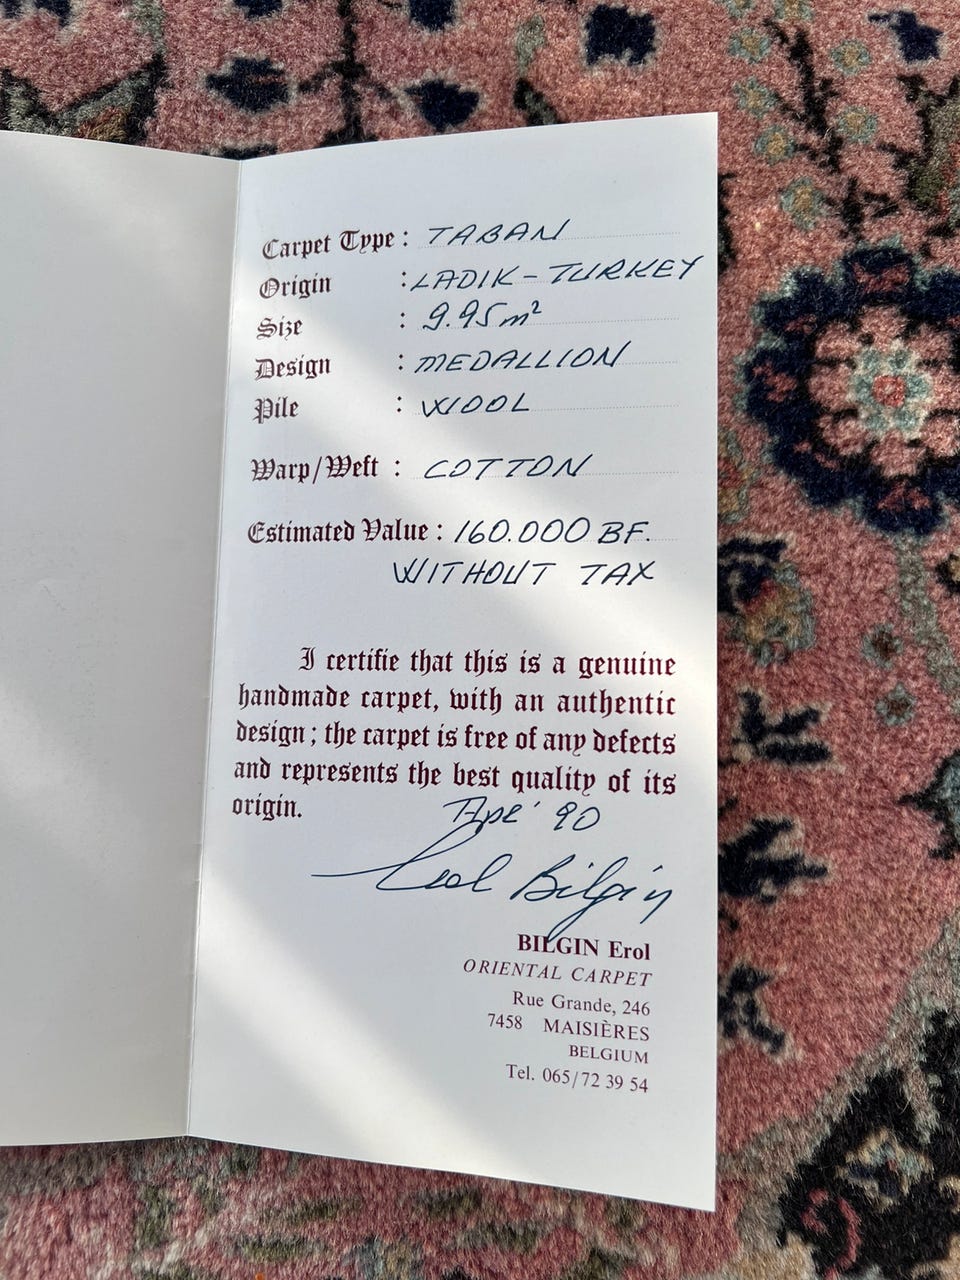 Carpet Type : TABAN
Origin : LADIK - TURKEY
Size : 9.95 m²
Design : MEDALLION
Pile : WOOL
Warp/Weft : COTTON
Estimated Value : 160.000 BF.
WITHOUT TAX
I certifie that this is a genuine
handmade carpet, with an authentic
design ; the carpet is free of any defects
and represents the best quality of its
origin.
'90
Erol Bilgin
BILGIN Erol
ORIENTAL CARPET
Rue Grande, 246
7458 MAISIÈRES
BELGIUM
Tel. 065/72 39 54